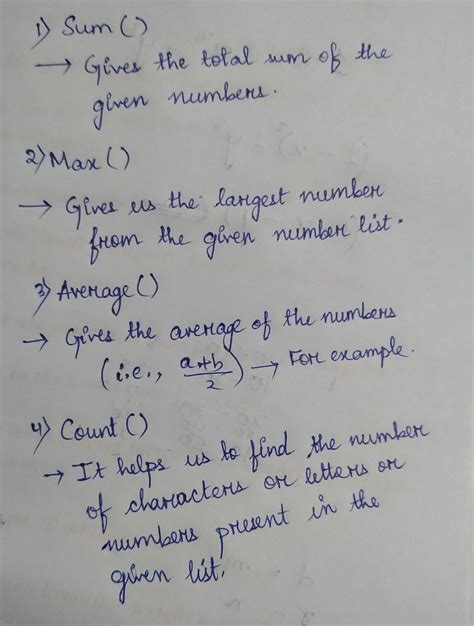 1) Sum ()
→ Gives the total sum of the
given numbers.
2) Max ()
→ Gives us the largest number
from the given number list.
3) Average ()
→ Gives the average of the numbers
(i.e., a+b/2) → For example.
4) Count ()
→ It helps us to find the number
of characters or letters or
numbers present in the
given list.